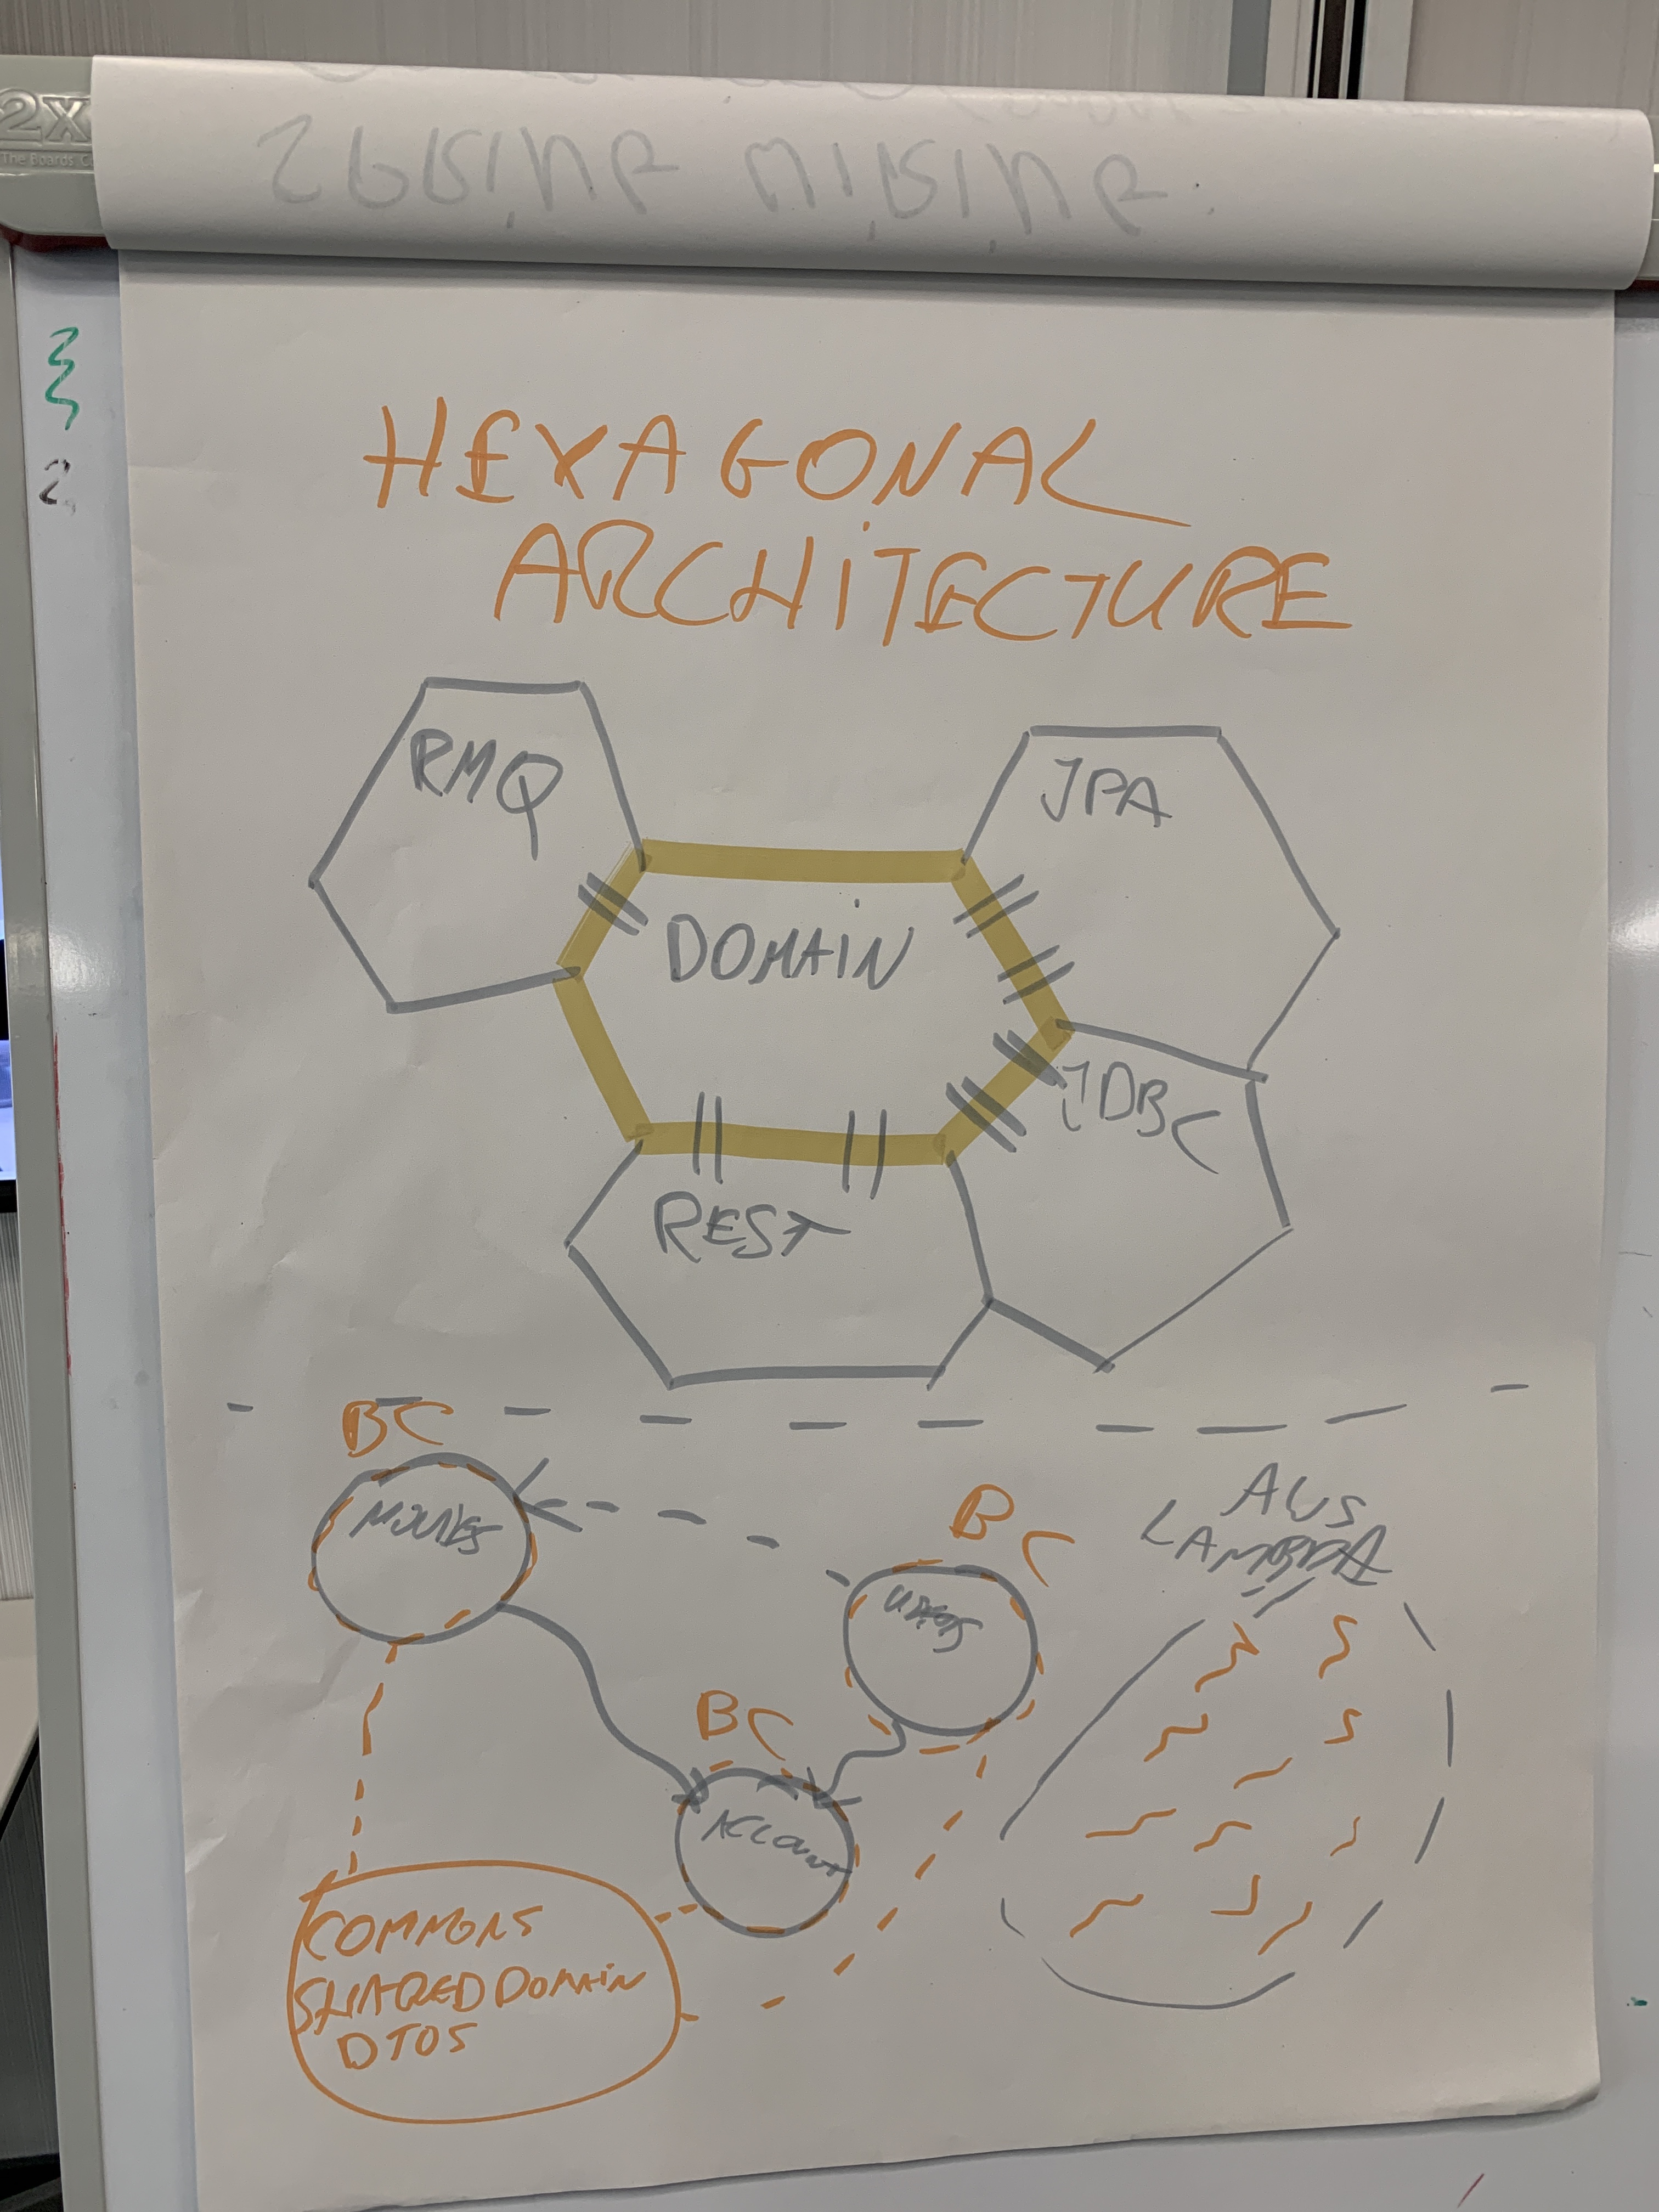 2X
The Boards C
3
2
HEXAGONAL
ARCHITECTURE
RMQ
JPA
DOMAIN
JDBC
REST
BC
BC
AWS
LAMBDA
USERS
BC
ACCOUNT
COMMONS
SHARED DOMAIN
DTOS